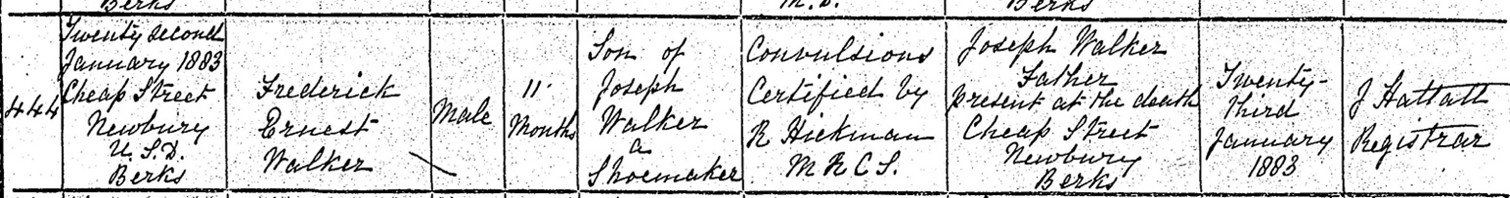 Berks
M.D.
Berks
444
Twenty second
January 1883
Cheap Street
Newbury
U.S.D.
Berks
Frederick
Ernest
Walker
Male
11
Months
Son of
Joseph
Walker
a
Shoemaker
Convulsions
Certified by
R Hickman
M R C S.
Joseph Walker
Father
present at the death
Cheap Street
Newbury
Berks
Twenty-
third
January
1883
J Hattatt
Registrar